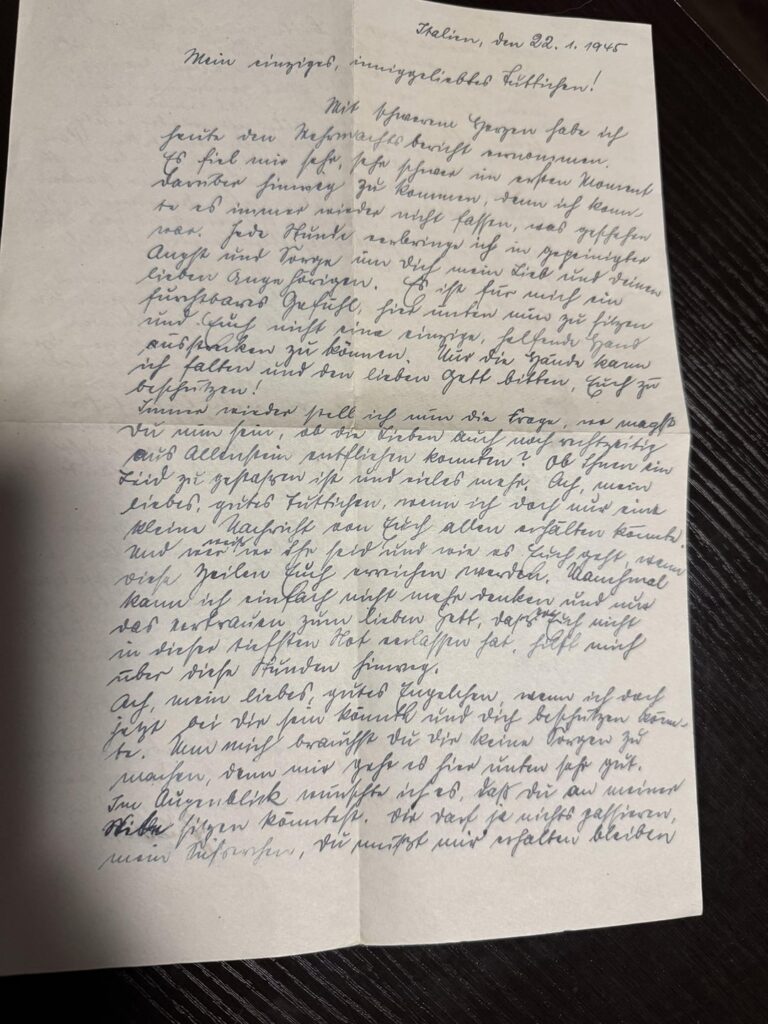 Italien, den 22. 1. 1945
Mein einziges, inniggeliebtes Tuttichen!
Mit schwerem Herzen habe ich
heute den Wehrmachtsbericht vernommen.
Es fiel mir sehr, sehr schwer im ersten Moment
darüber hinweg zu kommen, denn ich konn-
te es immer wieder nicht fassen, was geschehen
war. Jede Stunde verbringe ich in gepeinigter
Angst und Sorge um Dich mein Lieb und deinen
lieben Angehörigen. Es ist für mich ein
furchtbares Gefühl, hier unten nun zu sitzen
und Euch nicht eine einzige, helfende Hand
ausstrecken zu können. Nur die Hände kann
ich falten und den lieben Gott bitten, Euch zu
beschützen!
Immer wieder stell ich nun die Frage, wo magst
Du nun sein, ob die Lieben auch noch rechtzeitig
aus Allenstein entfliehen konnten? Ob Ihnen ein
Leid zu gestoßen ist und vieles mehr. Ach, mein
liebes, gutes Tuttichen, wenn ich doch nur eine
kleine Nachricht von Euch allen erhalten könnte.
Und wer weiß wo Ihr seid und wie es Euch geht, wenn
diese Zeilen Euch erreichen werden. Manchmal
kann ich einfach nicht mehr denken und nur
das Vertrauen zum lieben Gott, daß er Euch nicht
in dieser tiefsten Not verlassen hat, hilft mich
über diese Stunden hinweg.
Ach, mein liebes, gutes Engelchen, wenn ich doch
jetzt bei Dir sein könnte und dich beschützen könn-
te. Um mich brauchst Du dir keine Sorgen zu
machen, denn mir geht es hier unten sehr gut.
Im Augenblick wünschte ich es, daß Du an meiner
Stelle sitzen könntest. Dir darf ja nichts passieren,
mein, Du mußt mir erhalten bleiben